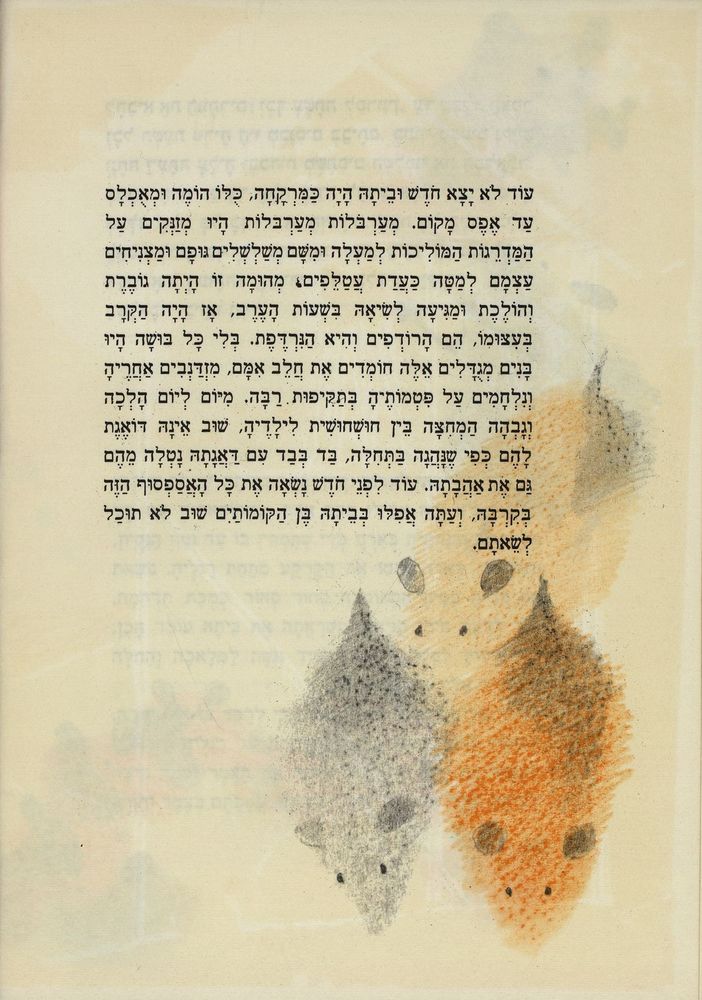 עוֹד לֹא יָצָא חֹדֶשׁ וּבֵיתָהּ הָיָה כַּמִּרְקָחָה, כֻּלּוֹ הוֹמֶה וּמְאֻכְלָס
עַד אֶפֶס מָקוֹם. מְעַרְבֹּלוֹת מְעַרְבֹּלוֹת הָיוּ מְזַנְּקִים עַל
הַמַּדְרֵגוֹת הַמּוֹלִיכוֹת לְמַעְלָה וּמִשָּׁם מְשַׁלְשְׁלִים גּוּפָם וּמַצְנִיחִים
עַצְמָם לְמַטָּה כַּעֲדַת עֲטַלֵּפִים. מְהוּמָה זוֹ הָיְתָה גוֹבֶרֶת
וְהוֹלֶכֶת וּמַגִּיעָה לְשִׂיאָהּ בִּשְׁעוֹת הָעֶרֶב, אָז הָיָה הַקְּרָב
בְּעִצּוּמוֹ, הֵם הָרוֹדְפִים וְהִיא הַנִּרְדֶּפֶת. בְּלִי כָּל בּוּשָׁה הָיוּ
בָּנִים מְגֻדָּלִים אֵלֶּה חוֹמְדִים אֶת חֲלֵב אִמָּם, מִזְדַּנְּבִים אַחֲרֶיהָ
וְנִלְחָמִים עַל פִּטְמוֹתֶיהָ בְּתַקִּיפוּת רַבָּה. מִיּוֹם לְיוֹם הָלְכָה
וְגָבְהָה הַמְּחִצָּה בֵּין חוּשְׁחוּשִׁית לִילָדֶיהָ, שׁוּב אֵינָהּ דּוֹאֶגֶת
לָהֶם כְּפִי שֶׁנָּהֲגָה בַּתְּחִלָּה, בַּד בְּבַד עִם דַּאֲגָתָהּ נָטְלָה מֵהֶם
גַּם אֶת אַהֲבָתָהּ. עוֹד לִפְנֵי חֹדֶשׁ נָשְׂאָה אֶת כָּל הָאֲסַפְסוּף הַזֶּה
בְּקִרְבָּהּ, וְעַתָּה אֲפִלּוּ בְּבֵיתָהּ בֶּן הַקּוֹמוֹתַיִם שׁוּב לֹא תוּכַל
לְשֵׂאתָם.